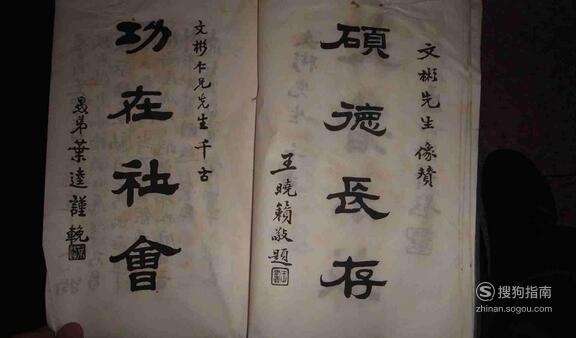 文彬先生像贊
碩德長存
王曉籟敬題
文彬仁兄先生千古
功在社會
葉逵謹輓
搜狗指南
zhinan.sogou.com